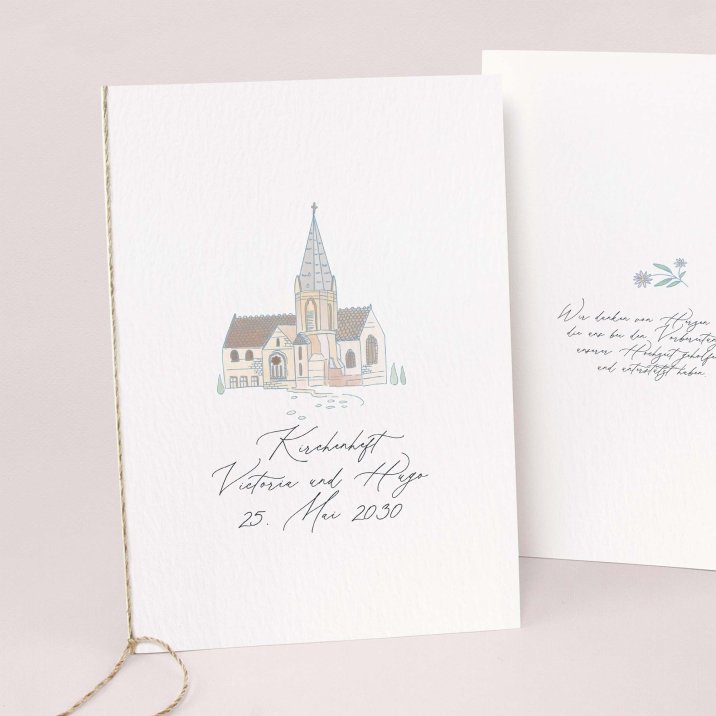 Kirchenheft
Victoria und Hugo
25. Mai 2030
Wir danken von Herzen
die uns bei den Vorbereitun
unserer Hochzeit geholfen
und unterstützt haben.